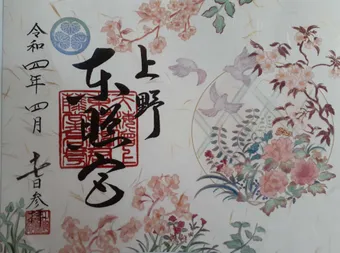 上野
東照宮
令和四年四月
七日参拝